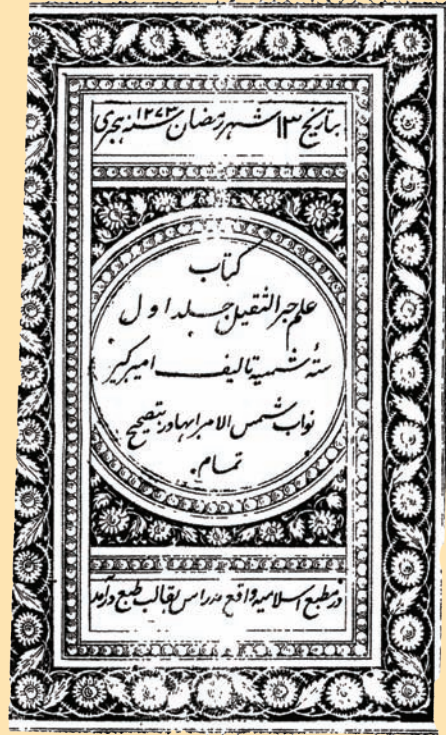 بتاریخ ۱۳ شهر رمضان ۱۲۷۳ سنه هجری
کتاب
علم جر الثقیل جلد اول
ستهٔ شمسیه تالیف امیر کبیر
نواب شمس الامرا بهادر بتصحیح
تمام.
در مطبع اسلامیه واقع مدراس بقالب طبع درآمد